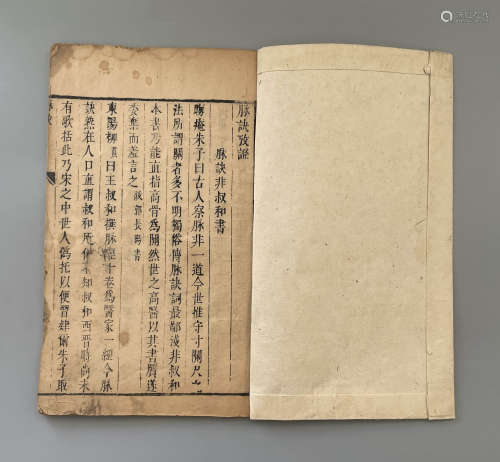 脉訣攷證
脉訣非叔和書
晦庵朱子曰古人察脉非一道今世惟守寸關尺之
法所謂關者多不明獨俗傳脉訣詞最鄙淺非叔和
本書乃能直指高骨爲關然世之高醫以其書贋遂
委棄而羞言之 跋郭長陽書
東陽柳貫曰王叔和撰脉經十卷爲醫家一經今脉
訣熟在人口直謂叔和所作不知叔和西晉時尚未
有歌括此乃宋之中世人僞托以便習肄爾朱子取